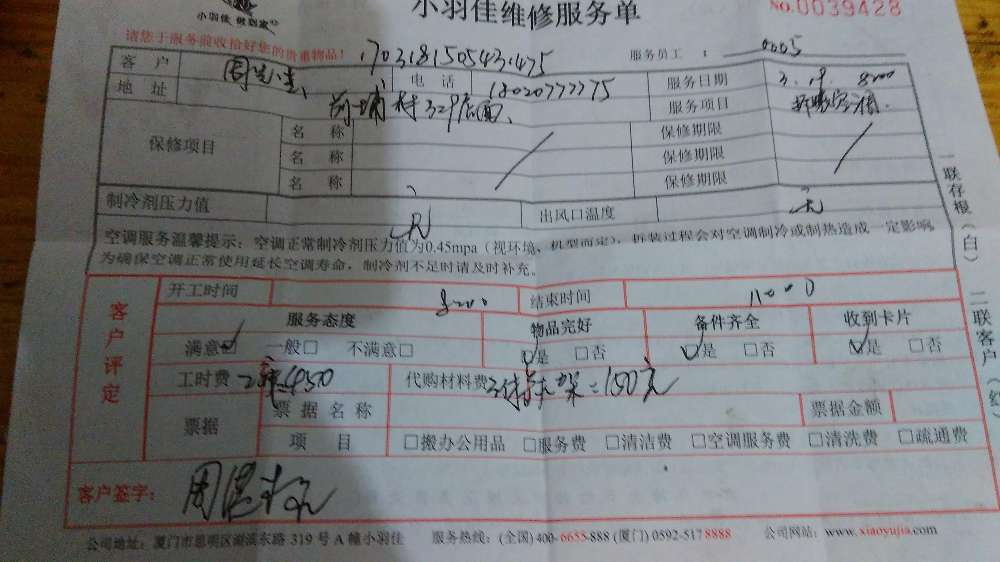 小羽佳 做到家
小羽佳维修服务单
No.0039428
请您于服务前收拾好您的贵重物品！
1703181505431475
服务员工 ： 0005
客 户 电 话 18020777775 服务日期 3.19. 8:00
地 址 前埔村329店面 服务项目
保修项目 名 称 保修期限
名 称 保修期限
名 称 保修期限
制冷剂压力值 出风口温度
空调服务温馨提示：空调正常制冷剂压力值为0.45mpa（视环境、机型而定），拆装过程会对空调制冷或制热造成一定影响，
为确保空调正常使用延长空调寿命，制冷剂不足时请及时补充。
一联存根（白） 二联客户（红
客户评定
开工时间 8:00 结束时间 11:00
服务态度 物品完好 备件齐全 收到卡片
满意☑ 一般□ 不满意□ ☑是 □否 ☑是 □否 ☑是 □否
工时费 代购材料费 =150元
票据 票据名称 票据金额
项 目 □搬办公用品 □服务费 □清洁费 □空调服务费 □清洗费 □疏通费
客户签字：
公司地址：厦门市思明区湖滨东路 319 号 A 幢小羽佳 服务热线：(全国) 400-6655-888 (厦门) 0592-517 8888 公司网站：www.xiaoyujia.com